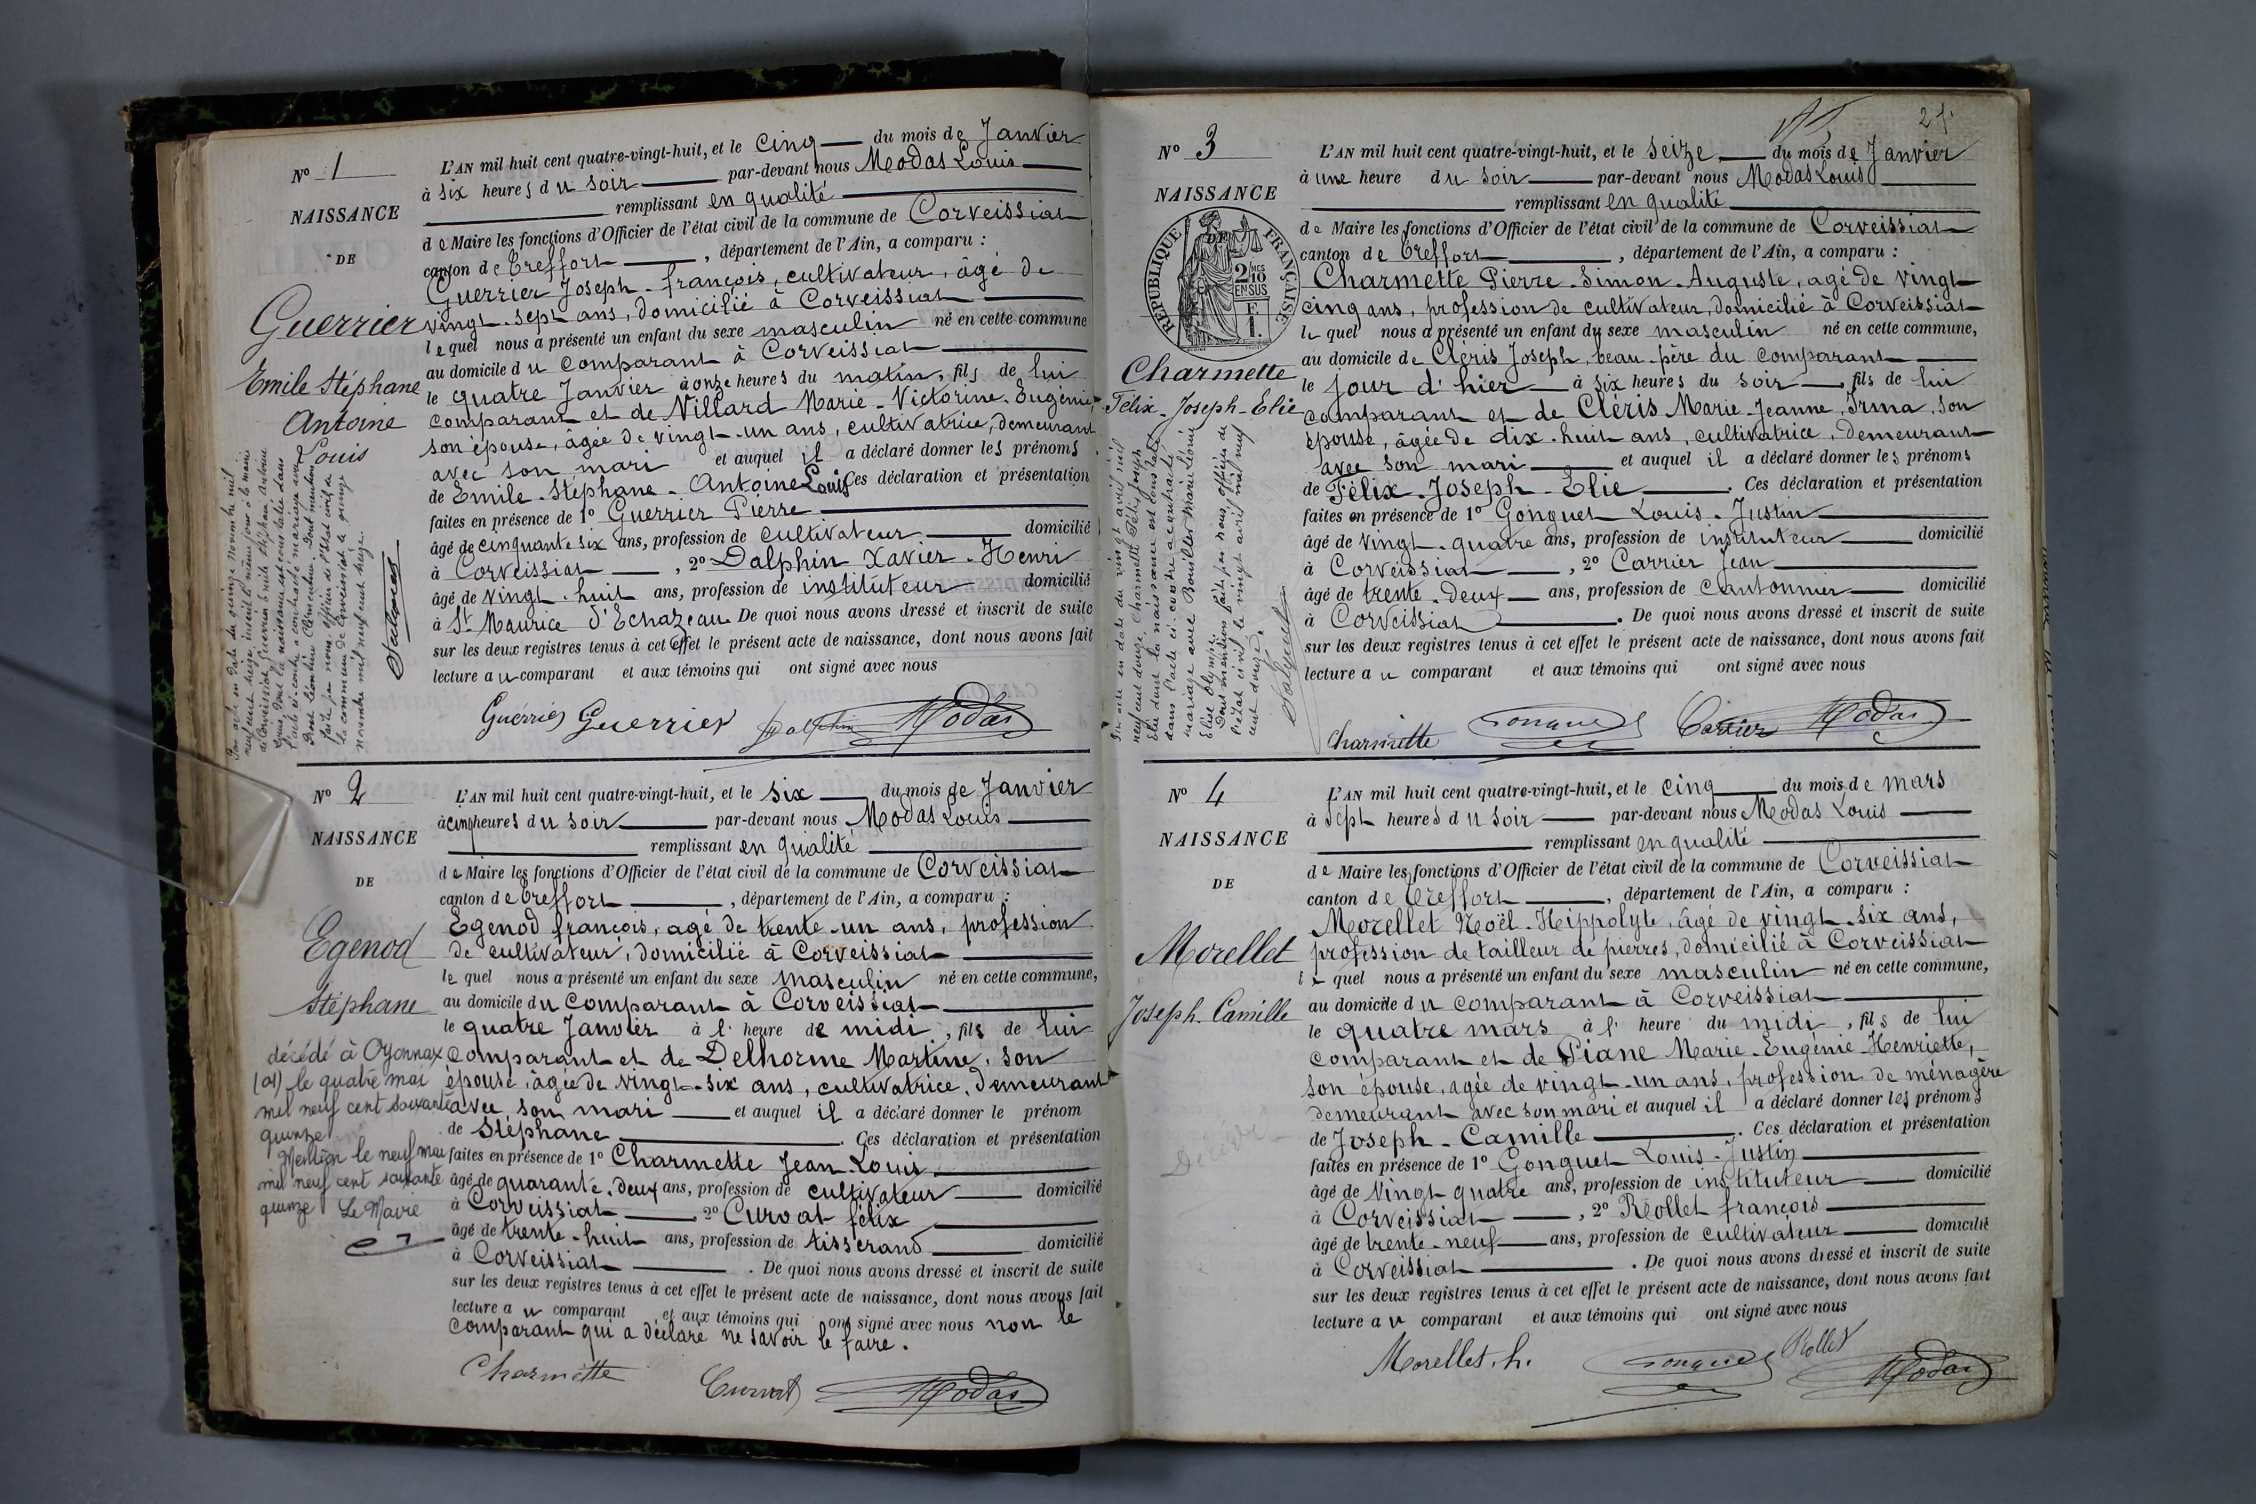 N° 1
NAISSANCE
DE
Guerrier
Emile Stéphane
Antoine
Louis
L'AN mil huit cent quatre-vingt-huit, et le cinq du mois de Janvier
à six heures du soir par-devant nous Modas Louis
remplissant en qualité
de Maire les fonctions d'Officier de l'état civil de la commune de Corveissiat
canton de Treffort, département de l'Ain, a comparu :
Guerrier Joseph-françois, cultivateur, âgé de
vingt-sept ans, domicilié à Corveissiat
lequel nous a présenté un enfant du sexe masculin né en cette commune
au domicile du comparant à Corveissiat
le quatre Janvier à onze heures du matin, fils de lui
comparant et de Villard Marie-Victorine-Eugénie,
son épouse, âgée de vingt-un ans, cultivatrice, demeurant
avec son mari et auquel il a déclaré donner les prénoms
de Emile-Stéphane-Antoine Louis Ces déclaration et présentation
faites en présence de 1° Guerrier Pierre
âgé de cinquante six ans, profession de cultivateur domicilié
à Corveissiat, 2° Dalphin Xavier-Henri
âgé de vingt-huit ans, profession de instituteur domicilié
à St Maurice d'Echazeau. De quoi nous avons dressé et inscrit de suite
sur les deux registres tenus à cet effet le présent acte de naissance, dont nous avons fait
lecture au comparant et aux témoins qui ont signé avec nous
Guerrier Guerrier Dalphin Modas
Par acte en date du quinze novembre mil
neuf cent treize, inscrit le même jour à la mairie
de Corveissiat, Guerrier Emile Stéphane Antoine
Louis, dont la naissance est constatée dans
l'acte ci-contre a contracté mariage avec
faite par nous, officier de l'Etat civil de
la commune de Corveissiat le quinze
novembre mil neuf cent treize.
N° 2
NAISSANCE
DE
Egenod
Stéphane
décédé à Oyonnax
(01) le quatre mai
mil neuf cent soixante
quinze
Mention le neuf mai
mil neuf cent soixante
quinze Le Maire
L'AN mil huit cent quatre-vingt-huit, et le six du mois de Janvier
à cinq heures du soir par-devant nous Modas Louis
remplissant en qualité
de Maire les fonctions d'Officier de l'état civil de la commune de Corveissiat
canton de Treffort, département de l'Ain, a comparu :
Egenod françois, agé de trente-un ans, profession
de cultivateur, domicilié à Corveissiat
lequel nous a présenté un enfant du sexe masculin né en cette commune,
au domicile du comparant à Corveissiat
le quatre Janvier à l' heure de midi, fils de lui
comparant et de Delhorme Martine, son
épouse, âgée de vingt-six ans, cultivatrice, demeurant
avec son mari et auquel il a déclaré donner le prénom
de Stéphane. Ces déclaration et présentation
faites en présence de 1° Charmette Jean-Louis
âgé de quarante-deux ans, profession de cultivateur domicilié
à Corveissiat, 2° Curvat félix
âgé de trente-huit ans, profession de tisserand domicilié
à Corveissiat. De quoi nous avons dressé et inscrit de suite
sur les deux registres tenus à cet effet le présent acte de naissance, dont nous avons fait
lecture au comparant et aux témoins qui ont signé avec nous non le
comparant qui a déclaré ne savoir le faire.
Charmette Curvat Modas
21.
N° 3
NAISSANCE
DE
RÉPUBLIQUE FRANÇAISE
2 MES
10
EN SUS
Charmette
Félix-Joseph-Elie
L'AN mil huit cent quatre-vingt-huit, et le seize du mois de Janvier
à une heure du soir par-devant nous Modas Louis
remplissant en qualité
de Maire les fonctions d'Officier de l'état civil de la commune de Corveissiat
canton de Treffort, département de l'Ain, a comparu :
Charmette Pierre-Simon-Auguste, agé de vingt
cinq ans, profession de cultivateur, domicilié à Corveissiat
lequel nous a présenté un enfant du sexe masculin né en cette commune,
au domicile de Cléris Joseph, beau-père du comparant
le jour d'hier à six heures du soir, fils de lui
comparant et de Cléris Marie-Jeanne, Irma, son
épouse, âgée de dix-huit ans, cultivatrice, demeurant
avec son mari et auquel il a déclaré donner les prénoms
de Félix-Joseph-Elie. Ces déclaration et présentation
faites en présence de 1° Gonguet Louis-Justin
âgé de vingt-quatre ans, profession de instituteur domicilié
à Corveissiat, 2° Carrier Jean
âgé de trente-deux ans, profession de cantonnier domicilié
à Corveissiat. De quoi nous avons dressé et inscrit de suite
sur les deux registres tenus à cet effet le présent acte de naissance, dont nous avons fait
lecture au comparant et aux témoins qui ont signé avec nous
Charmette Gonguet Carrier Modas
Par acte en date du vingt avril mil
neuf cent douze, Charmette Félix Joseph
Elie dont la naissance est constatée
dans l'acte ci-contre a contracté
mariage avec Bouillet Marie Léonie
Elise Olympe.
Dont mention faite par nous officier de
l'état civil le vingt avril mil neuf
cent douze.
N° 4
NAISSANCE
DE
Morellet
Joseph-Camille
L'AN mil huit cent quatre-vingt-huit, et le cinq du mois de mars
à sept heures du soir par-devant nous Modas Louis
remplissant en qualité
de Maire les fonctions d'Officier de l'état civil de la commune de Corveissiat
canton de Treffort, département de l'Ain, a comparu :
Morellet Noël-Hippolyte, âgé de vingt-six ans,
profession de tailleur de pierres, domicilié à Corveissiat
lequel nous a présenté un enfant du sexe masculin né en cette commune,
au domicile du comparant à Corveissiat
le quatre mars à l' heure du midi, fils de lui
comparant et de Piane Marie-Eugénie-Henriette,
son épouse, agée de vingt-un ans, profession de ménagère
demeurant avec son mari et auquel il a déclaré donner les prénoms
de Joseph-Camille. Ces déclaration et présentation
faites en présence de 1° Gonguet Louis-Justin
âgé de vingt quatre ans, profession de instituteur domicilié
à Corveissiat, 2° Réollet françois
âgé de trente-neuf ans, profession de cultivateur domicilié
à Corveissiat. De quoi nous avons dressé et inscrit de suite
sur les deux registres tenus à cet effet le présent acte de naissance, dont nous avons fait
lecture au comparant et aux témoins qui ont signé avec nous
Morellet. h. Gonguet Rollet Modas